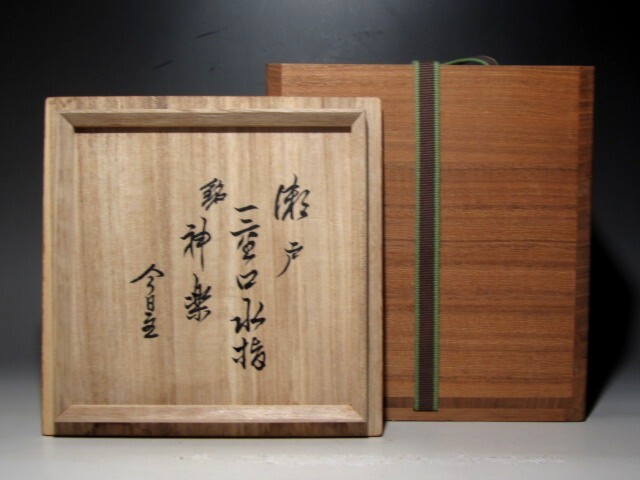 瀬戸
一重口水指
銘 神楽
今日主